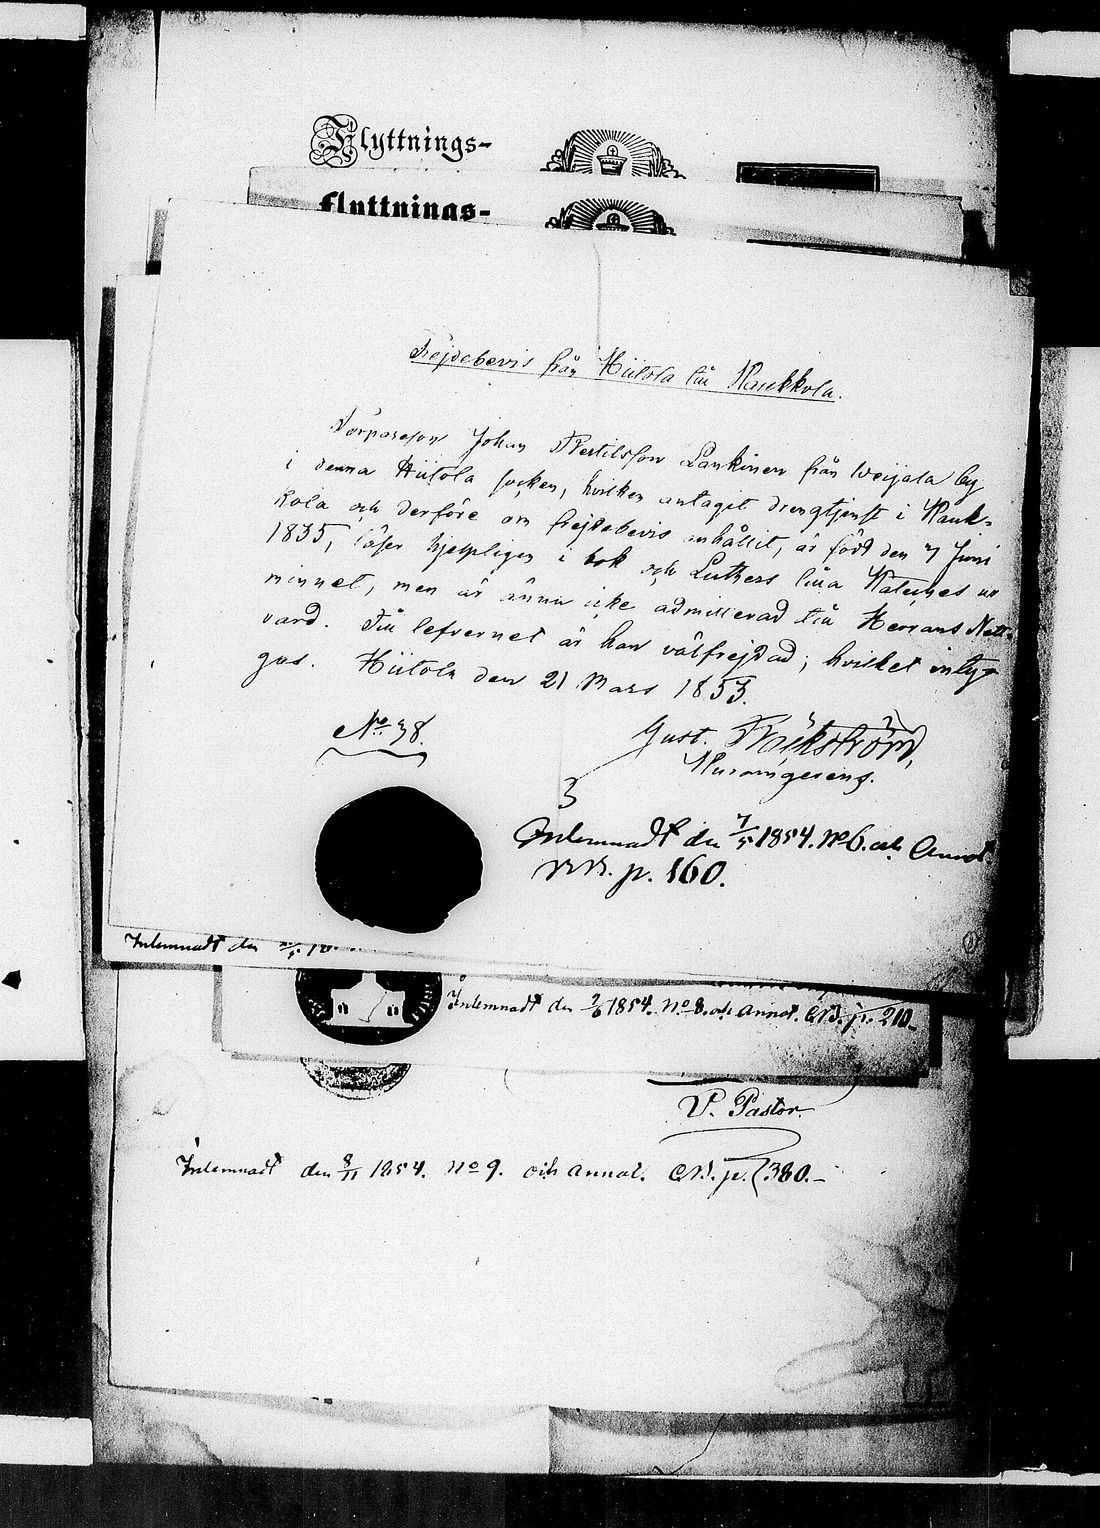 Flyttnings-
Flyttnings-
Frejdebevis från Hiitola till Kaukkola.
Torparason Johan Bertilsson Lankinen från Weijala by
i denna Hiitola socken, hvilken antagit drengtjenst i Kauk-
kola och derföre om frejdebevis anhållit, är född den 7 Juni
1835, läser hjelpligen i bok och Luthers lilla Kateches ur
minnet, men är ännu icke admitterad till Herrans Natt-
vard. Till lefvernet är han välfrejdad; hvilket intyg-
gas. Hiitola den 21 Mars 1853.
No 38.
Gust. Bäckström,
Inlemnadt den 7/5 1854. No 6. och Annot
p. 160.
Inlemnadt den
Inlemnadt den 2/6 1854. No 8. och Annot. CB. p. 210.
V. Pastor.
Inlemnadt den 8/11 1854. No 9. och annot. CB. p. 380.-